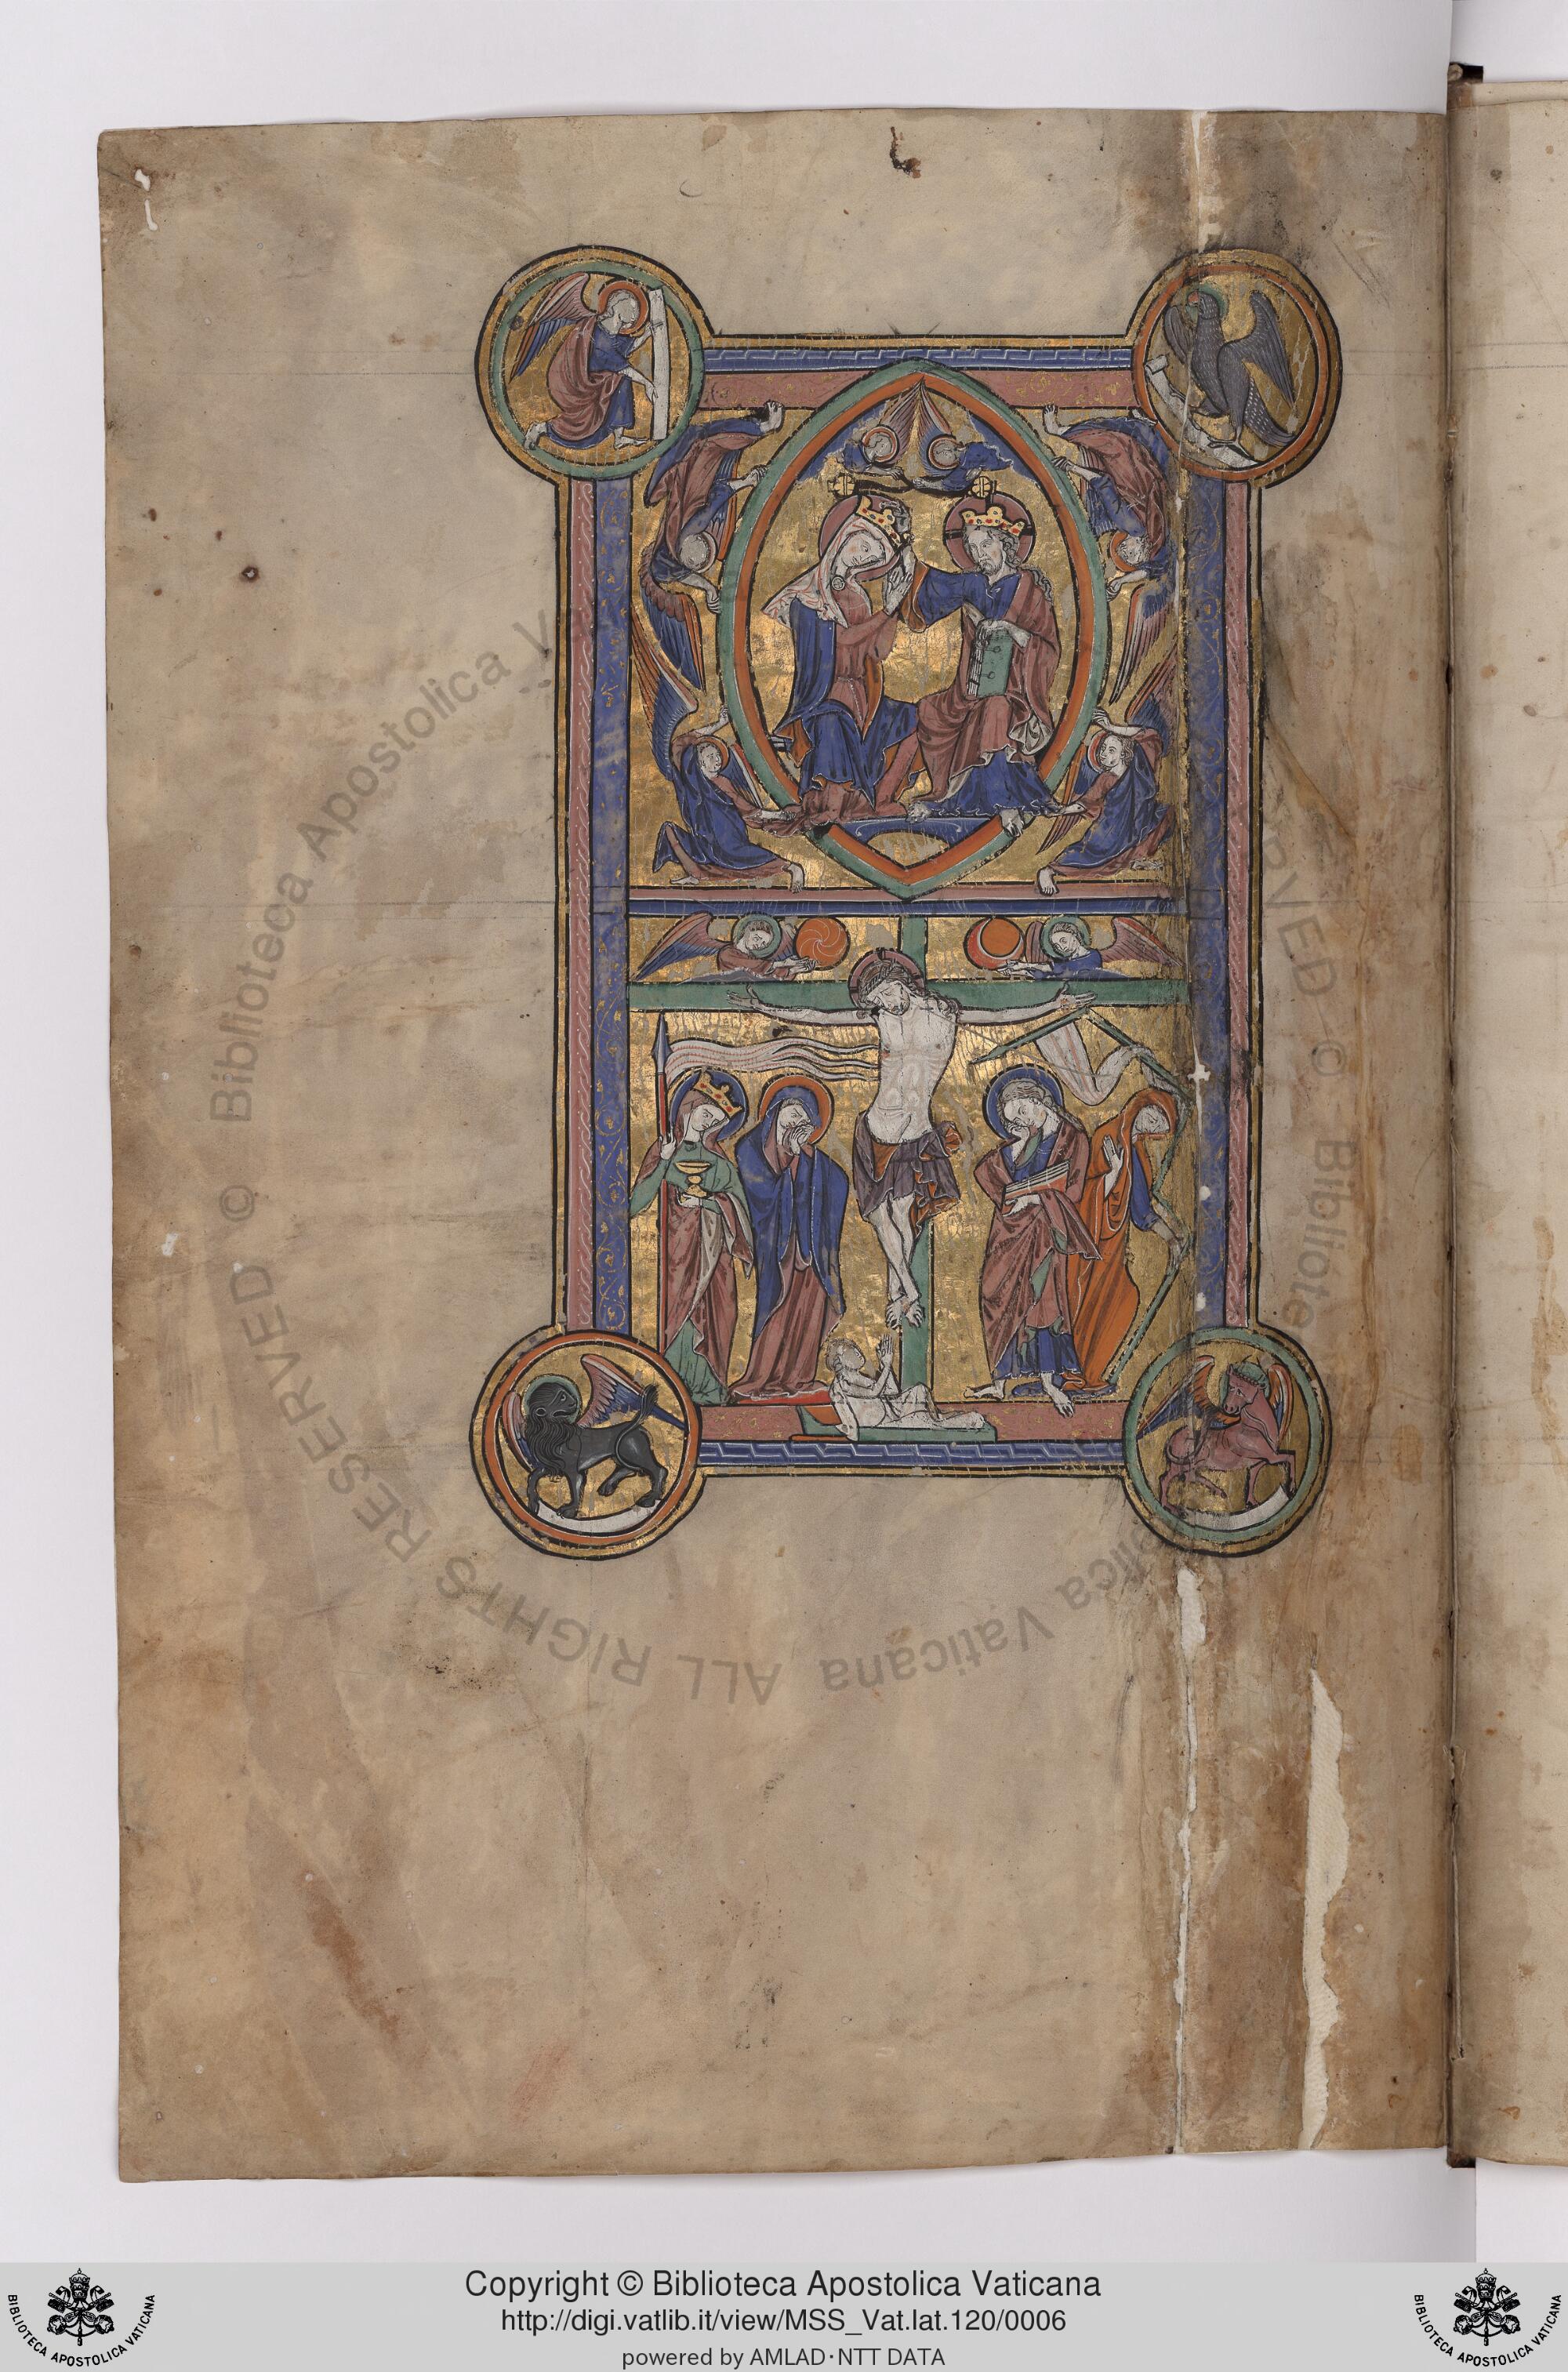 © Biblioteca Apostolica Vaticana ALL RIGHTS RESERVED
© Biblioteca Apostolica V
RVED © Bibliote
Copyright © Biblioteca Apostolica Vaticana
http://digi.vatlib.it/view/MSS_Vat.lat.120/0006
powered by AMLAD·NTT DATA
BIBLIOTECA APOSTOLICA VATICANA
BIBLIOTECA APOSTOLICA VATICANA